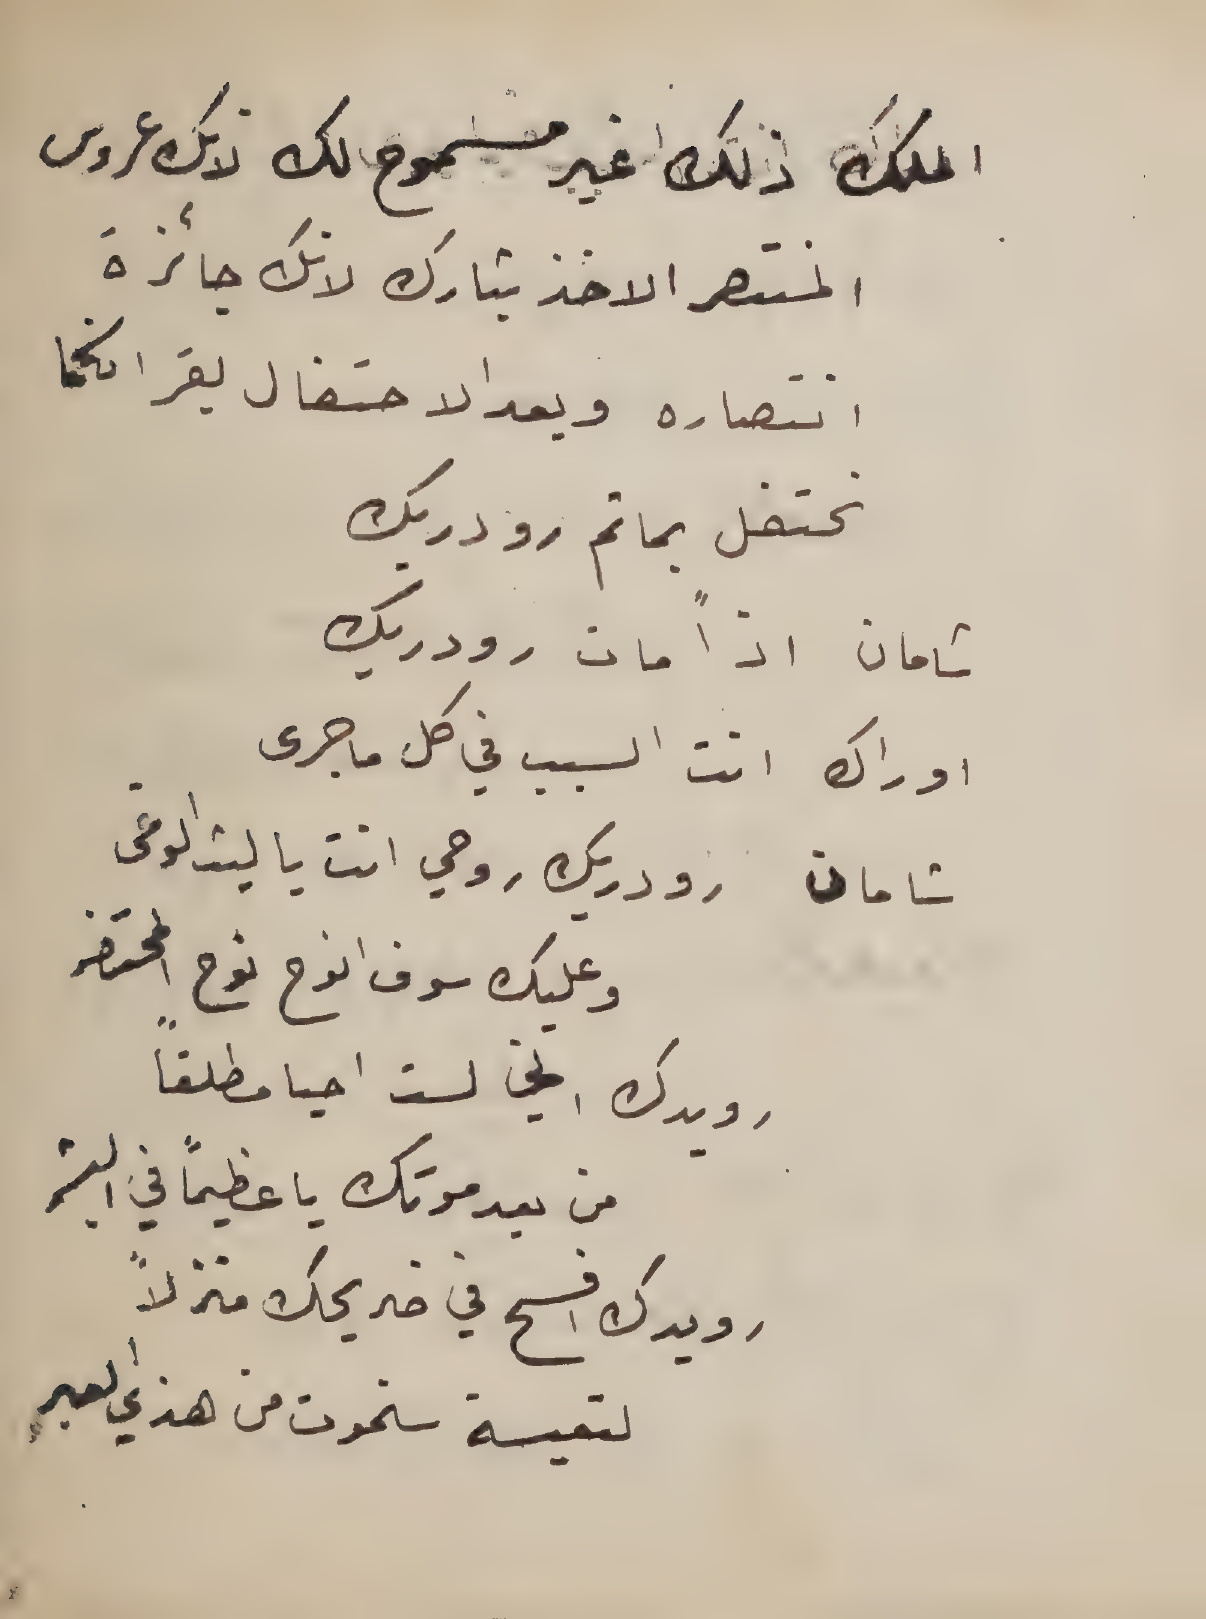 الملك ذلك غير مسموح لك لانك عروس
المنتصر الاخذ بثارك لانك جائزة
انتصاره وبعد الاحتفال بقرانكما
نحتفل بماتم رودريك
شامان اذاً مات رودريك
اوراك انت السبب في كل ماجرى
شامان رودريك روحي انت يا ليث الوغى
وعليك سوف انوح نوح المحتضر
رويدك انني لست احيا مطلقاً
من بعد موتك يا عظيماً في البشر
رويدك افسح في ضريحك منزلاً
لتعيسة ستموت من هذي العبر